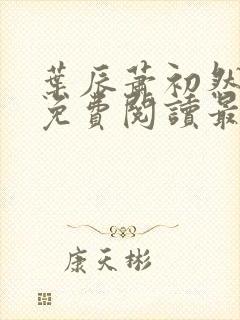 葉辰蕭初然
免費閱讀最
康天彬